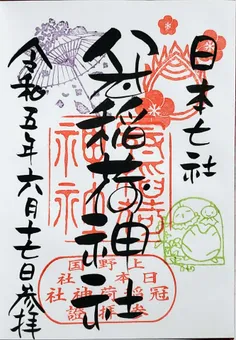 日本七社
冠稲荷神社
令和五年六月十七日参拝
上野国
日本七社
冠稲荷神社
参拝證